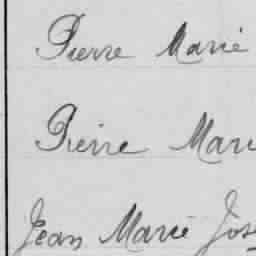 Pierre Marie
Pierre Mari
Jean Marie Jose